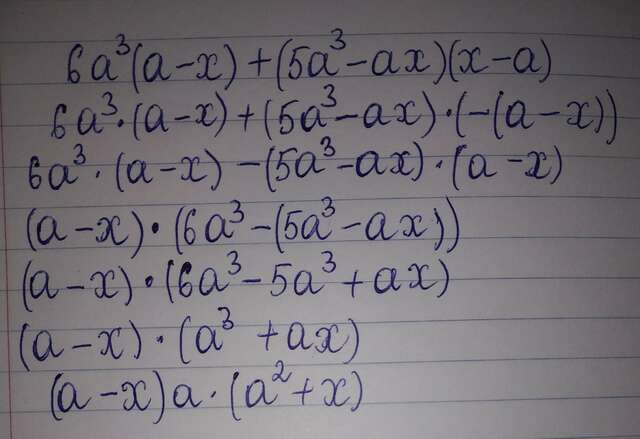 6a³(a-x)+(5a³-ax)(x-a)
6a³·(a-x)+(5a³-ax)·(-(a-x))
6a³·(a-x)-(5a³-ax)·(a-x)
(a-x)·(6a³-(5a³-ax))
(a-x)·(6a³-5a³+ax)
(a-x)·(a³+ax)
(a-x)a·(a²+x)